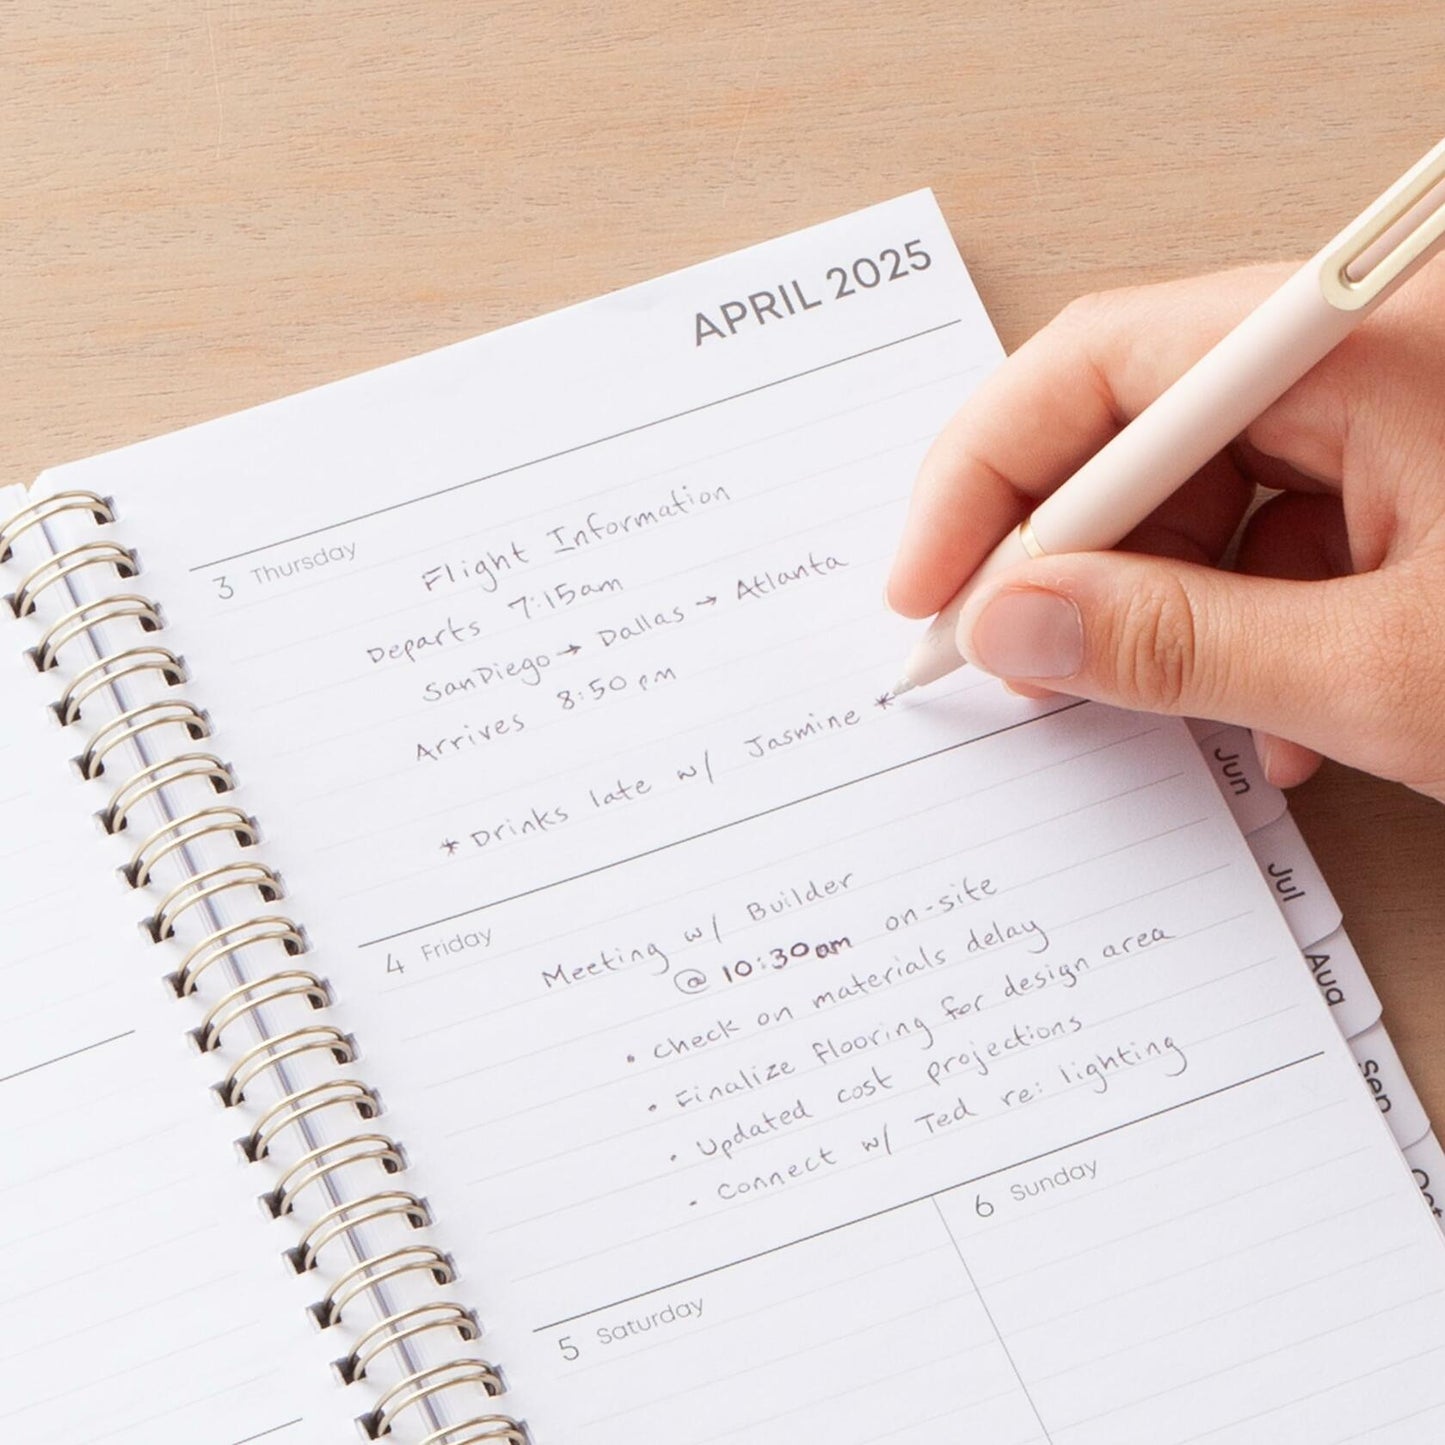 APRIL 2025
3 Thursday
Flight Information
Departs 7:15am
SanDiego → Dallas → Atlanta
Arrives 8:50pm
* Drinks late w/ Jasmine *
4 Friday
Meeting w/ Builder
@ 10:30am on-site
• Check on materials delay
• Finalize flooring for design area
• Updated cost projections
• Connect w/ Ted re: lighting
5 Saturday
6 Sunday
Jun
Jul
Aug
Sep
Oct